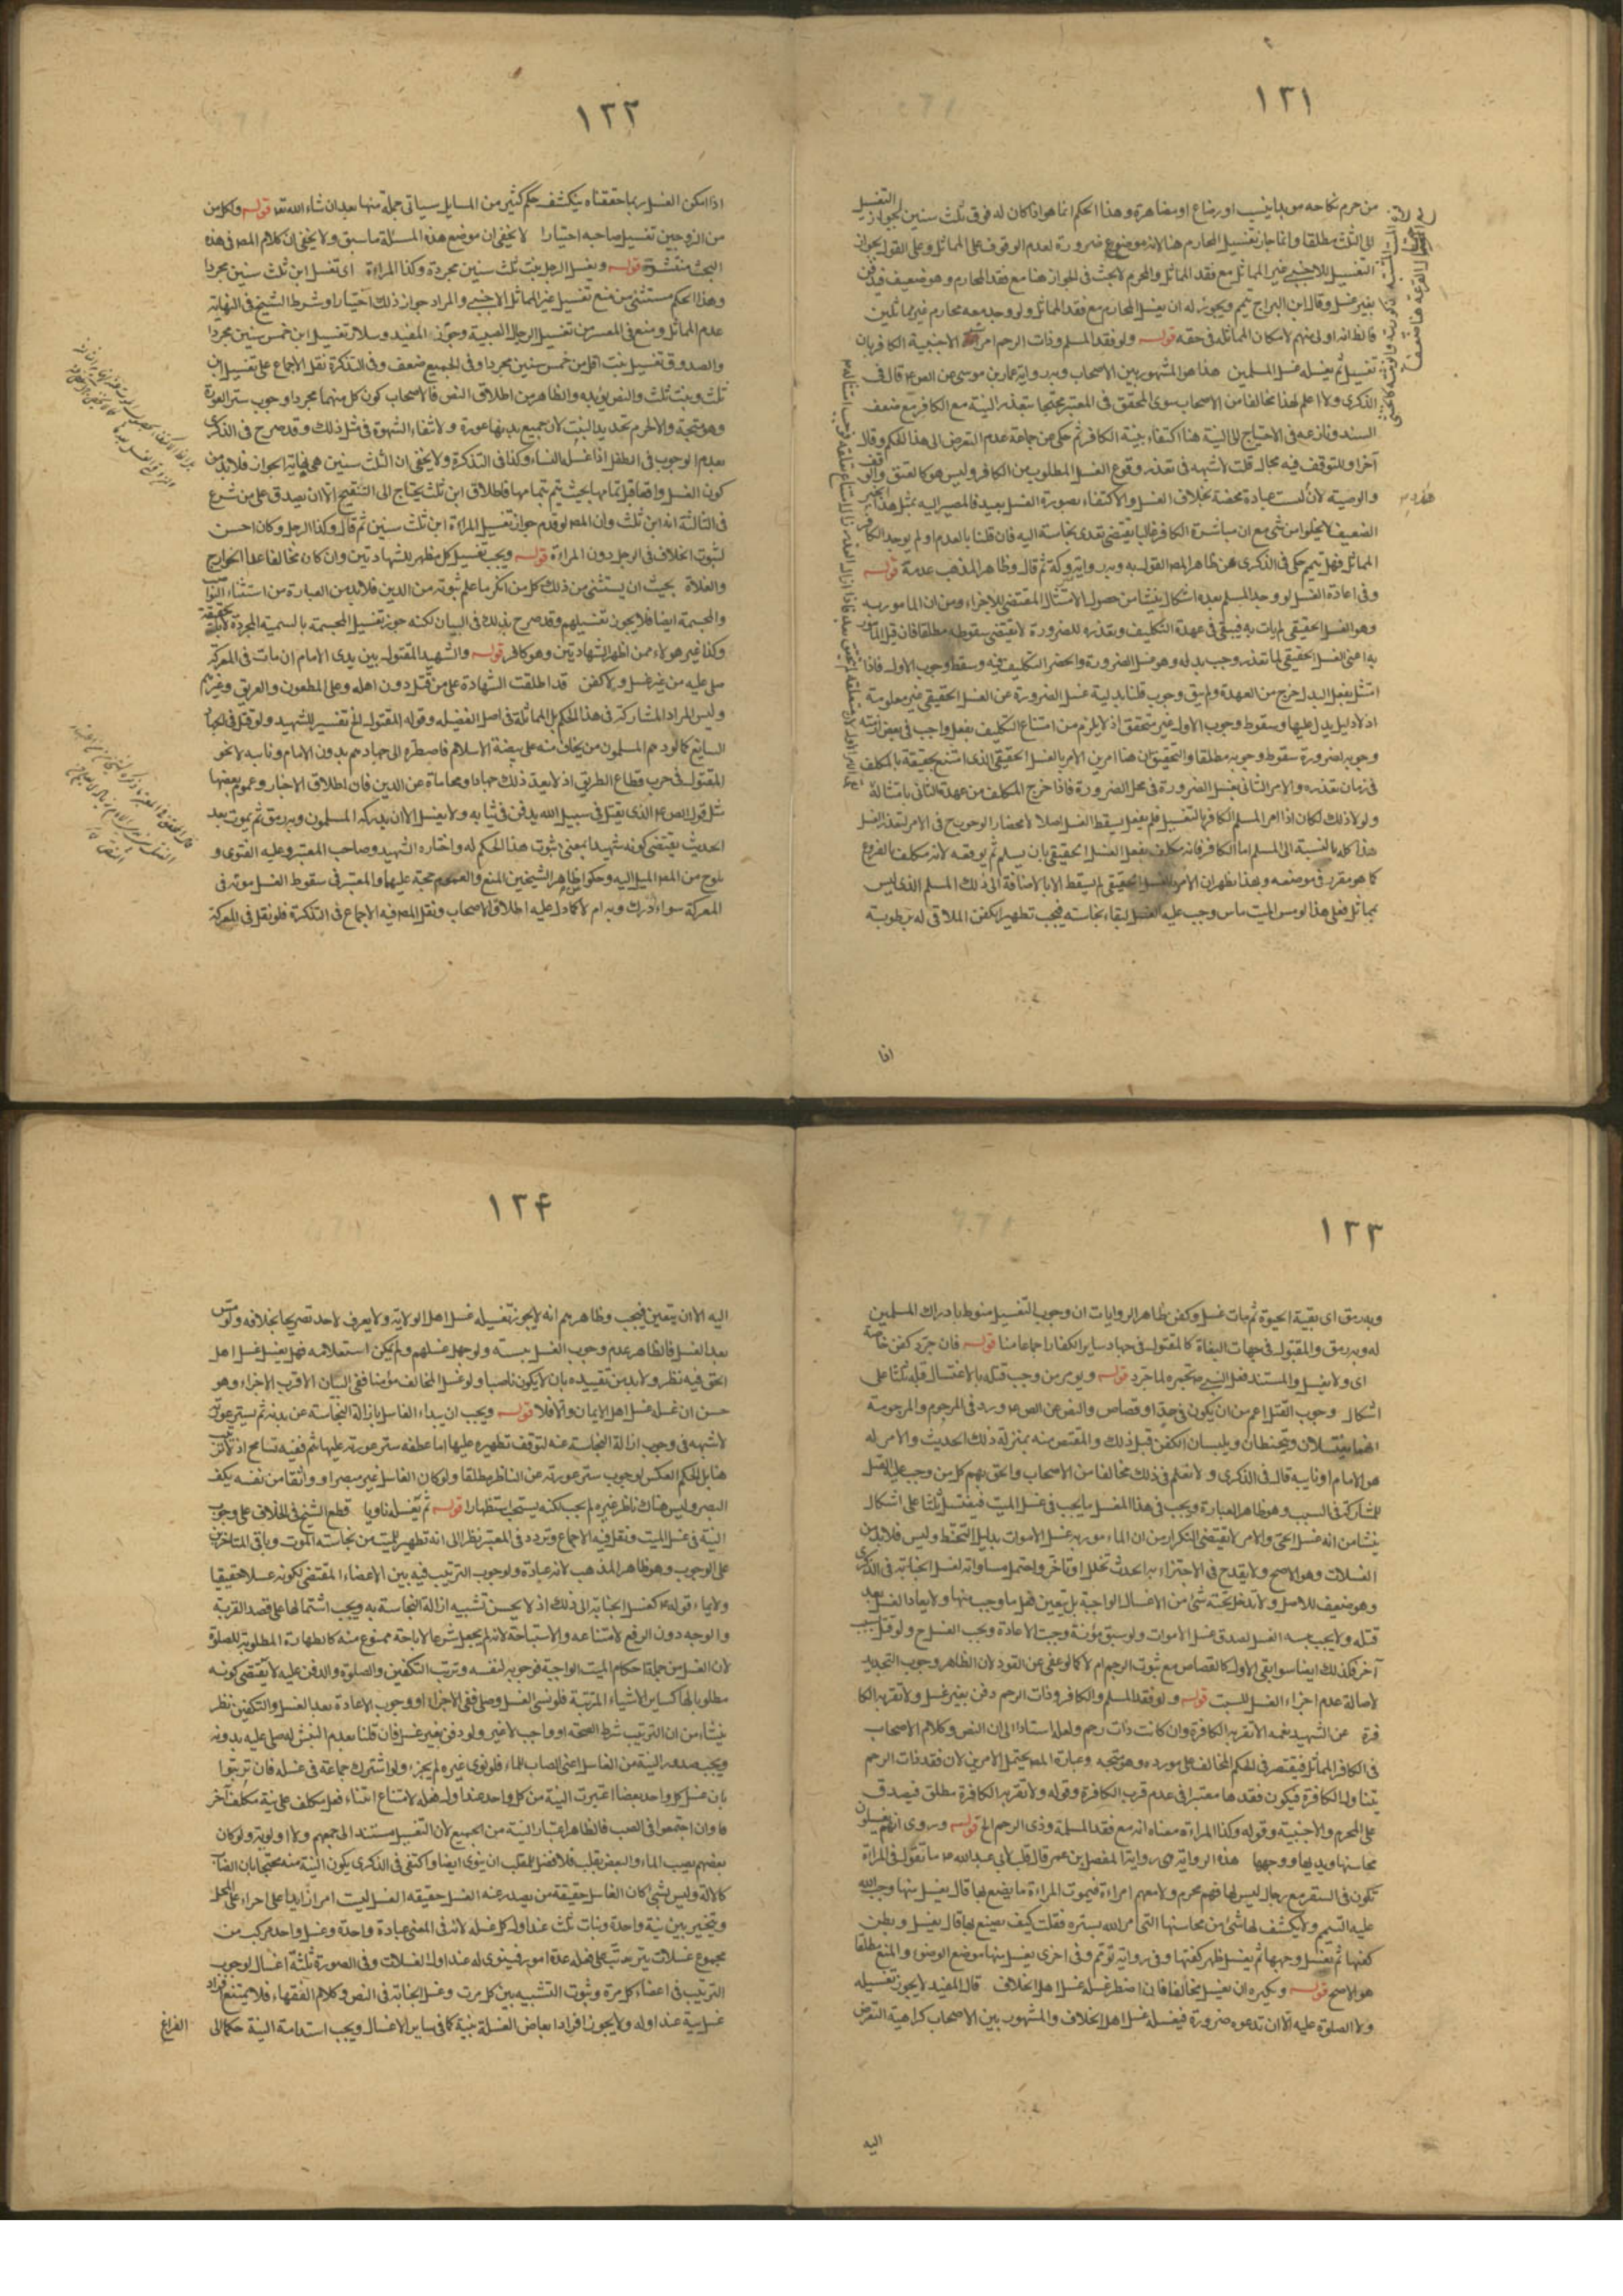 ١٢١
من حرم نكاحه موبدا بنسب او رضاع او مصاهرة وهذا الحكم انما هو اذا كان له فوق ثلث سنين لجواز التغسيل
الى الثلث مطلقا وانما جاز تغسيل المحارم هنا لانه موضع ضرورة لعدم الوقوف على المماثل وعلى القول بجواز
التغسيل للاجنبي غير المماثل مع فقد المماثل والمحرم لا بحث في الجواز هنا مع فقد المحارم وهو ضعيف فيدفن
بغير غسل وقال ابن البراج تيمم ويجوز له ان يغسل المحارم مع فقد المماثل ولو وجد معه محارم غير مماثلين
فالظاهر انه اولى منهم لامكان المماثلة في حقه قوله ولو فقد المسلم وذات الرحم امر الاجنبية الكافر بان
تغسيل ثم يغسله غسل المسلمين هذا هو المشهور بين الاصحاب وبه رواية عمار بن موسى عن الص ع قال في
الذكرى ولا اعلم لهذا مخالفا من الاصحاب سوى المحقق في المعتبر محتجا بتعذر النية مع الكافر مع ضعف
السند ونازعه في الاحتياج الى النية هنا اكتفاء بنية الكافر ثم حكى عن جماعة عدم التعرض الى هذا الحكم وقال
آخرا وللتوقف فيه مجال قلت لا شبهة في تعذر وقوع الغسل المطلوب من الكافر وليس هو كالعتق والوقف
والوصية لأنها ليست عبادة محضة بخلاف الغسل والاكتفاء بصورة الغسل بعيد فالمصير اليه بمثل هذا الخبر
الضعيف لا يخلوا من شئ مع ان مباشرة الكافر غالبا يقتضي تعدى نجاسة اليه فان قلنا بالعدم او لم يوجد الكافر
المماثل فهل ييمم حكى في الذكرى عن ظاهر المص القول به وبه رواية متروكة ثم قال وظاهر المذهب عدمه قوله
وفي اعادة الغسل لو وجد المسلم بعده اشكال ينشا من حصول الامتثال المقتضي للاجزاء ومن ان المامور به
وهو الغسل الحقيقي لم يات به فيبقى في عهدة التكليف وتعذره للضرورة لا يقتضي سقوطه مطلقا فان قيل المامور
به اعني الغسل الحقيقي لما تعذر وجب بدله وهو غسل الضرورة وانحصر التكليف فيه وسقط وجوب الاول فاذا
امتثل بفعل البدل خرج من العهدة ولم يبق وجوب قلنا بدلية غسل الضرورة عن الغسل الحقيقي غير معلومة
اذ لا دليل يدل عليها وسقوط وجوب الاول غير متحقق اذ لا يلزم من امتناع التكليف بفعل واجب في بعض ازمنة
وجوبه لضرورة سقوط وجوبه مطلقا والتحقيق ان هنا امرين الامر بالغسل الحقيقي الذي امتنع تحقيقه بالمكلف
في زمان تعذره والامر الثاني بغسل الضرورة في محل الضرورة فاذا خرج المكلف من عهدة الثاني بامتثاله
ولولا ذلك لكان اذا امر المسلم الكافر بالتغسيل فلم يفعل يسقط الغسل اصلا لانحصار الوجوب ح في الامر لتعذر الغسل
هذا كله بالنسبة الى المسلم اما الكافر فانه مكلف بفعل الغسل الحقيقي بان يسلم ثم يوقعه لانه مكلف بالفروع
كما هو مقرر في موضعه وبهذا يظهر ان الامر بالغسل الحقيقي لم يسقط الا بالاضافة الى ذلك المسلم الذي ليس
بمماثل فعلى هذا لو مس الميت ماس وجب عليه الغسل لبقاء نجاسته فيجب تطهير الكفن الملاقي له برطوبة
اذا
١٢٢
اذا امكن الغسل وبما حققناه ينكشف حكم كثير من المسايل سياتي جملة منها بعد ان شاء الله تعا قوله ولكل من
من الزوجين تغسيل صاحبه اختيارا لا يخفى ان موضع هذه المسئلة ما سبق ولا يخفى ان كلام المص في هذه
البحث منتشرة قوله ويغسل الرجل بنت ثلث سنين مجردة وكذا المراءة اى تغسل ابن ثلث سنين مجردا
وهذا الحكم مستثنى من منع تغسيل غير المماثل الاجنبي والمراد جواز ذلك اختيارا وشرط الشيخ في النهاية
عدم المماثل ومنع في المعتبر من تغسيل الرجال الصبية وجوز المفيد وسلار تغسيل ابن خمس سنين مجردا
والصدوق تغسيل بنت اقل من خمس سنين مجردا وفي الجميع ضعف وفي التذكرة نقل الاجماع على تغسيل ابن
ثلث وبنت ثلث والنص يؤيده والظاهر من اطلاق النص فالاصحاب كون كل منهما مجردا وجوب ستر العورة
وهو متجه والاحرم تحديد البنت لان جميع بدنها عورة ولا نتفاء الشهوة في مثل ذلك وقد صرح في الذكرى
بعدم الوجوب في الطفل اذا غسله النساء وكذا في التذكرة ولا يخفى ان الثلث سنين هي نهاية الجواز فلابد من
كون الغسل واقعا قبل تمامها بحيث يتم بتمامها فاطلاق ابن ثلث يحتاج الى التنقيح الا ان يصدق على من شرع
في الثالثة انه ابن ثلث وان المص لو قدم جواز تغسيل المراءة ابن ثلث سنين ثم قال وكذا الرجل وكان احسن
لثبوت الخلاف في الرجل دون المراءة قوله ويجب تغسيل كل مظهر للشهادتين وان كان مخالفا عدا الخوارج
والغلاة يجب ان يستثنى من ذلك كل من انكر ما علم ثبوته من الدين فلابد من العبارة من استثناء النواصب
والمجسمة ايضا فلا يجوز تغسيلهم وقد صرح بذلك في البيان لكنه جوز تغسيل المجسمة بالتسمية المجردة
وكذا غير هولاء ممن اظهر الشهادتين وهو كافر قوله والشهيد المقتول بين يدى الامام ان مات في المعركة
صلى عليه من غير غسل ولا كفن قد اطلقت الشهادة على من قتل دون اهله وعلى المطعون والغريق وغيرهم
وليس المراد المشاركة في هذا الحكم بل المماثلة في اصل الفضيله وقوله المقتول الخ تفسير للشهيد ولو قتل في الجهاد
السايغ كما لو دهم المسلمون من يخاف منه على بيضة الاسلام فاضطر الى جهادهم بدون الامام ونايبه لا نحو
المقتول في حرب قطاع الطريق اذ لا يعد ذلك جهادا ومحاماة عن الدين فان اطلاق الاخبار وعموم بعضها
مثل قول الص ع الذي يقتل في سبيل الله يدفن في ثيابه ولا يغسل الا ان يدركه المسلمون وبه رمق ثم يموت بعد
الحديث يقتضي كونه شهيدا بمعنى ثبوت هذا الحكم له واختاره الشهيد وصاحب المعتبر وعليه الفتوى و
يلوح من المص الميل اليه وحكوا ظاهر الشيخين المنع والعموم حجة عليهما والمعتبر في سقوط الغسل موته في
المعركة سواء ادرك وبه ام لا كما دل عليه اطلاق الاصحاب ونقل المص فيه الاجماع في التذكرة فلو نقل في المعركة
١٢٣
وبه رمق اى بقية الحيوة ثم مات غسل وكفن بظاهر الروايات ان وجوب التغسيل منوط بادراك المسلمين
له وبه رمق والمقتول في جهات البغاة كالمقتول في جهاد ساير الكفار اجماعا منا قوله فان جرد كفن خاصة
اى ولا يغسل والمستند فعل النبي ص بحمزة لما جرد قوله ويومر من وجب قتله بالاغتسال قبله ثلثا على
اشكال وجوب القتل اعم من ان يكون في حد او قصاص والنص عن الص ع ورد في المرجوم والمرجومة
انهما يغتسلان ويتحنطان ويلبسان الكفن قبل ذلك والمقتص منه بمنزلة ذلك الحديث والامر له
هو الامام او نايبه قال في الذكرى ولا نعلم في ذلك مخالفا من الاصحاب والحق بهم كل من وجب عليه القتل
للمشاركة في السبب وهو ظاهر العبارة ويجب في هذا الغسل ما يجب في غسل الميت فيغتسل ثلثا على اشكال
ينشا من انه غسل الحى والامر لا يقتضي التكرار ومن ان الماء مور به غسل الاموات بدليل التحنط وليس فلابد من
الغسلات وهو الاصح ولا يقدح في الاجتزاء به الحدث تخلل او تاخر واحتمل مساواته لغسل الجنابة في الذكرى
وهو ضعيف للاصل ولا تدخل تحته شئ من الاغسال الواجبة بل يتعين فعل ما وجب منها ولا يعاد الغسل بعد
قتله ولا يجب بمسه الغسل لصدق غسل الاموات ولو سبق موته وجبت الاعادة ويجب الغسل ح ولو قتل بسبب
آخر فكذلك ايضا سوا بقى الاول كالقصاص مع ثبوت الرجم ام لا كما لو عفى عن القود لان الظاهر وجوب التجديد
لاصالة عدم اجزاء الغسل للسبب قوله ولو فقد المسلم والكافر وذات الرحم دفن بغير غسل ولا تقربه الكا
فرة عن الشهيد يغمه الا تقربه الكافرة وان كانت ذات رحم ولعله استنادا الى ان النص وكلام الاصحاب
في الكافر المماثل فيقتصر في الحكم المخالف على مورده وهو متجه وعبارة المص يحتمل الامرين لان فقد ذات الرحم
يتناول الكافرة فيكون فقدها معتبرا في عدم قرب الكافرة وقوله ولا تقربه الكافرة مطلق فيصدق
على المحرم والاجنبية وقوله وكذا المراءة معناه انه مع فقد المسلمة وذي الرحم الخ قوله وروى انهم يغسلون
محاسنها ويديها ووجهها هذه الرواية هى رواية المفضل بن عمر قال قلت لأبي عبد الله ع ما تقول في المراءة
تكون في السفر مع رجال ليس لها فيهم محرم ولا معهم امراءة فيموت المراءة ما يصنع بها قال يغسل منها ما اوجب الله
عليه التيمم ولا يكشف لها شئ من محاسنها التي امر الله بستره فقلت كيف يصنع بها قال يغسل وبطن
كفيها ثم تغسل وجهها ثم يغسل ظهر كفيها وفي رواية تؤمم وفي اخرى يغسل منها موضع الوضوء والمنع مطلقا
هو الاصح قوله ويكره ان يغسل مخالفا فان اضطر غسله غسل اهل الخلاف قال المفيد لا يجوز تغسيله
ولا الصلوة عليه الا ان تدعوه ضرورة فيغسله غسل اهل الخلاف والمشهور بين الاصحاب كراهية التعرض
اليه
١٢۴
اليه الا ان يتعين فيجب وظاهرهم انه لا يجوز تغسيله غسل اهل الولاية ولا يعرف لاحد تصريحا بخلافه ولو مس
بعد الغسل فالظاهر عدم وجوب الغسل بمسه ولو جهل غسلهم ولم يمكن استعلامه فهل يغسل غسل اهل
الحق فيه نظر ولابد من تقييده بان لا يكون ناصبا ولو غسل المخالف مؤمنا ففي البيان الاقرب الاجزاء وهو
حسن ان غسله غسل اهل الايمان والا فلا قوله ويجب ان يبداء الغاسل بازالة النجاسة عن بدنه ثم يستر عورته
لا شبهة في وجوب ازالة النجاسة عنه لتوقف تطهيره عليها اما عطفه ستر عورته عليها بثم ففيه تسامح اذ لا ترتب
هنا بل الحكم العكس لوجوب ستر عورته عن الناظر مطلقا ولو كان الغاسل غير مبصر او واثقا من نفسه بكف
البصر وليس هناك ناظر غيره لم يجب لكنه يستحب استظهارا قوله ثم يغسله ناويا قطع الشيخ في الخلاف على وجوب
النية في غسل الميت ونقل فيه الاجماع وتردد في المعتبر نظرا الى انه تطهير للميت من نجاسته الموت وباقي المتاخرين
على الوجوب وهو ظاهر المذهب لانه عبادة ولوجوب الترتيب فيه بين الاعضاء المقتضي لكونه غسلا حقيقيا
ولايماء قوله ع كغسل الجنابة الى ذلك اذ لا يحسن تشبيه ازالة النجاسة به ويجب اشتمالها على قصد القربة
والوجه دون الرفع لامتناعه والاستباحة لانه لم يجعل شرعا لاباحة ممنوع منه كالطهارة المطلوبة للصلوة
لان الغسل من جملة احكام الميت الواجبة فوجوبه لنفسه وترتب التكفين والصلوة والدفن عليه لا يقتضي كونه
مطلوبا لها كساير الاشياء المرتبة فلو نسى الغسل وصلى ففي الاجزاء او وجوب الاعادة بعد الغسل والتكفين نظر
ينشاء من ان الترتيب شرط الصحة او واجب لا غير ولو دفن بغير غسل فان قلنا بعدم النبش له صلى عليه بدونه
ويجب صدور النية من الغاسل اعني الصاب للماء فلو نوى غيره لم يجز ولو اشترك جماعة في غسله فان ترتبوا
بان غسل كل واحد بعضا اعتبرت النية من كل واحد عند اول فعله لامتناع ابتناء فعل مكلف على نية مكلف آخر
وان اجتمعوا في الصب فالظاهر اعتبار النية من الجميع لان التغسيل مستند الى جميعهم ولا اولوية ولو كان
بعضهم يصب الماء والبعض يقلب فلا فضل للمقلب ان ينوى ايضا واكتفى في الذكرى بكون النية منه محتجا بان الصاب
كالآلة وليس بشئ لان الغاسل حقيقة من يصدر عنه الغسل حقيقة الغسل ليست امرا زايدا على اجراء على المحل
ويتخير بين نية واحدة ونيات ثلث عند اول كل غسله لانه في المعنى عبادة واحدة وغسل واحد مركب من
مجموع غسلات يترتب على فعله عدة امور فينوى له عند اول الغسلات وفي الصورة ثلثة اغسال لوجوب
الترتيب في اعضاء كل مرة وثبوت التشبيه بين كل مرت وغسل الجنابة في النص وكلام الفقهاء فلا يمتنع افراد
غسل بنية عند اوله ولا يجوز افراد ابعاض الغسلة بنية كما في ساير الاغسال ويجب استدامة النية حكما الى
الفراغ